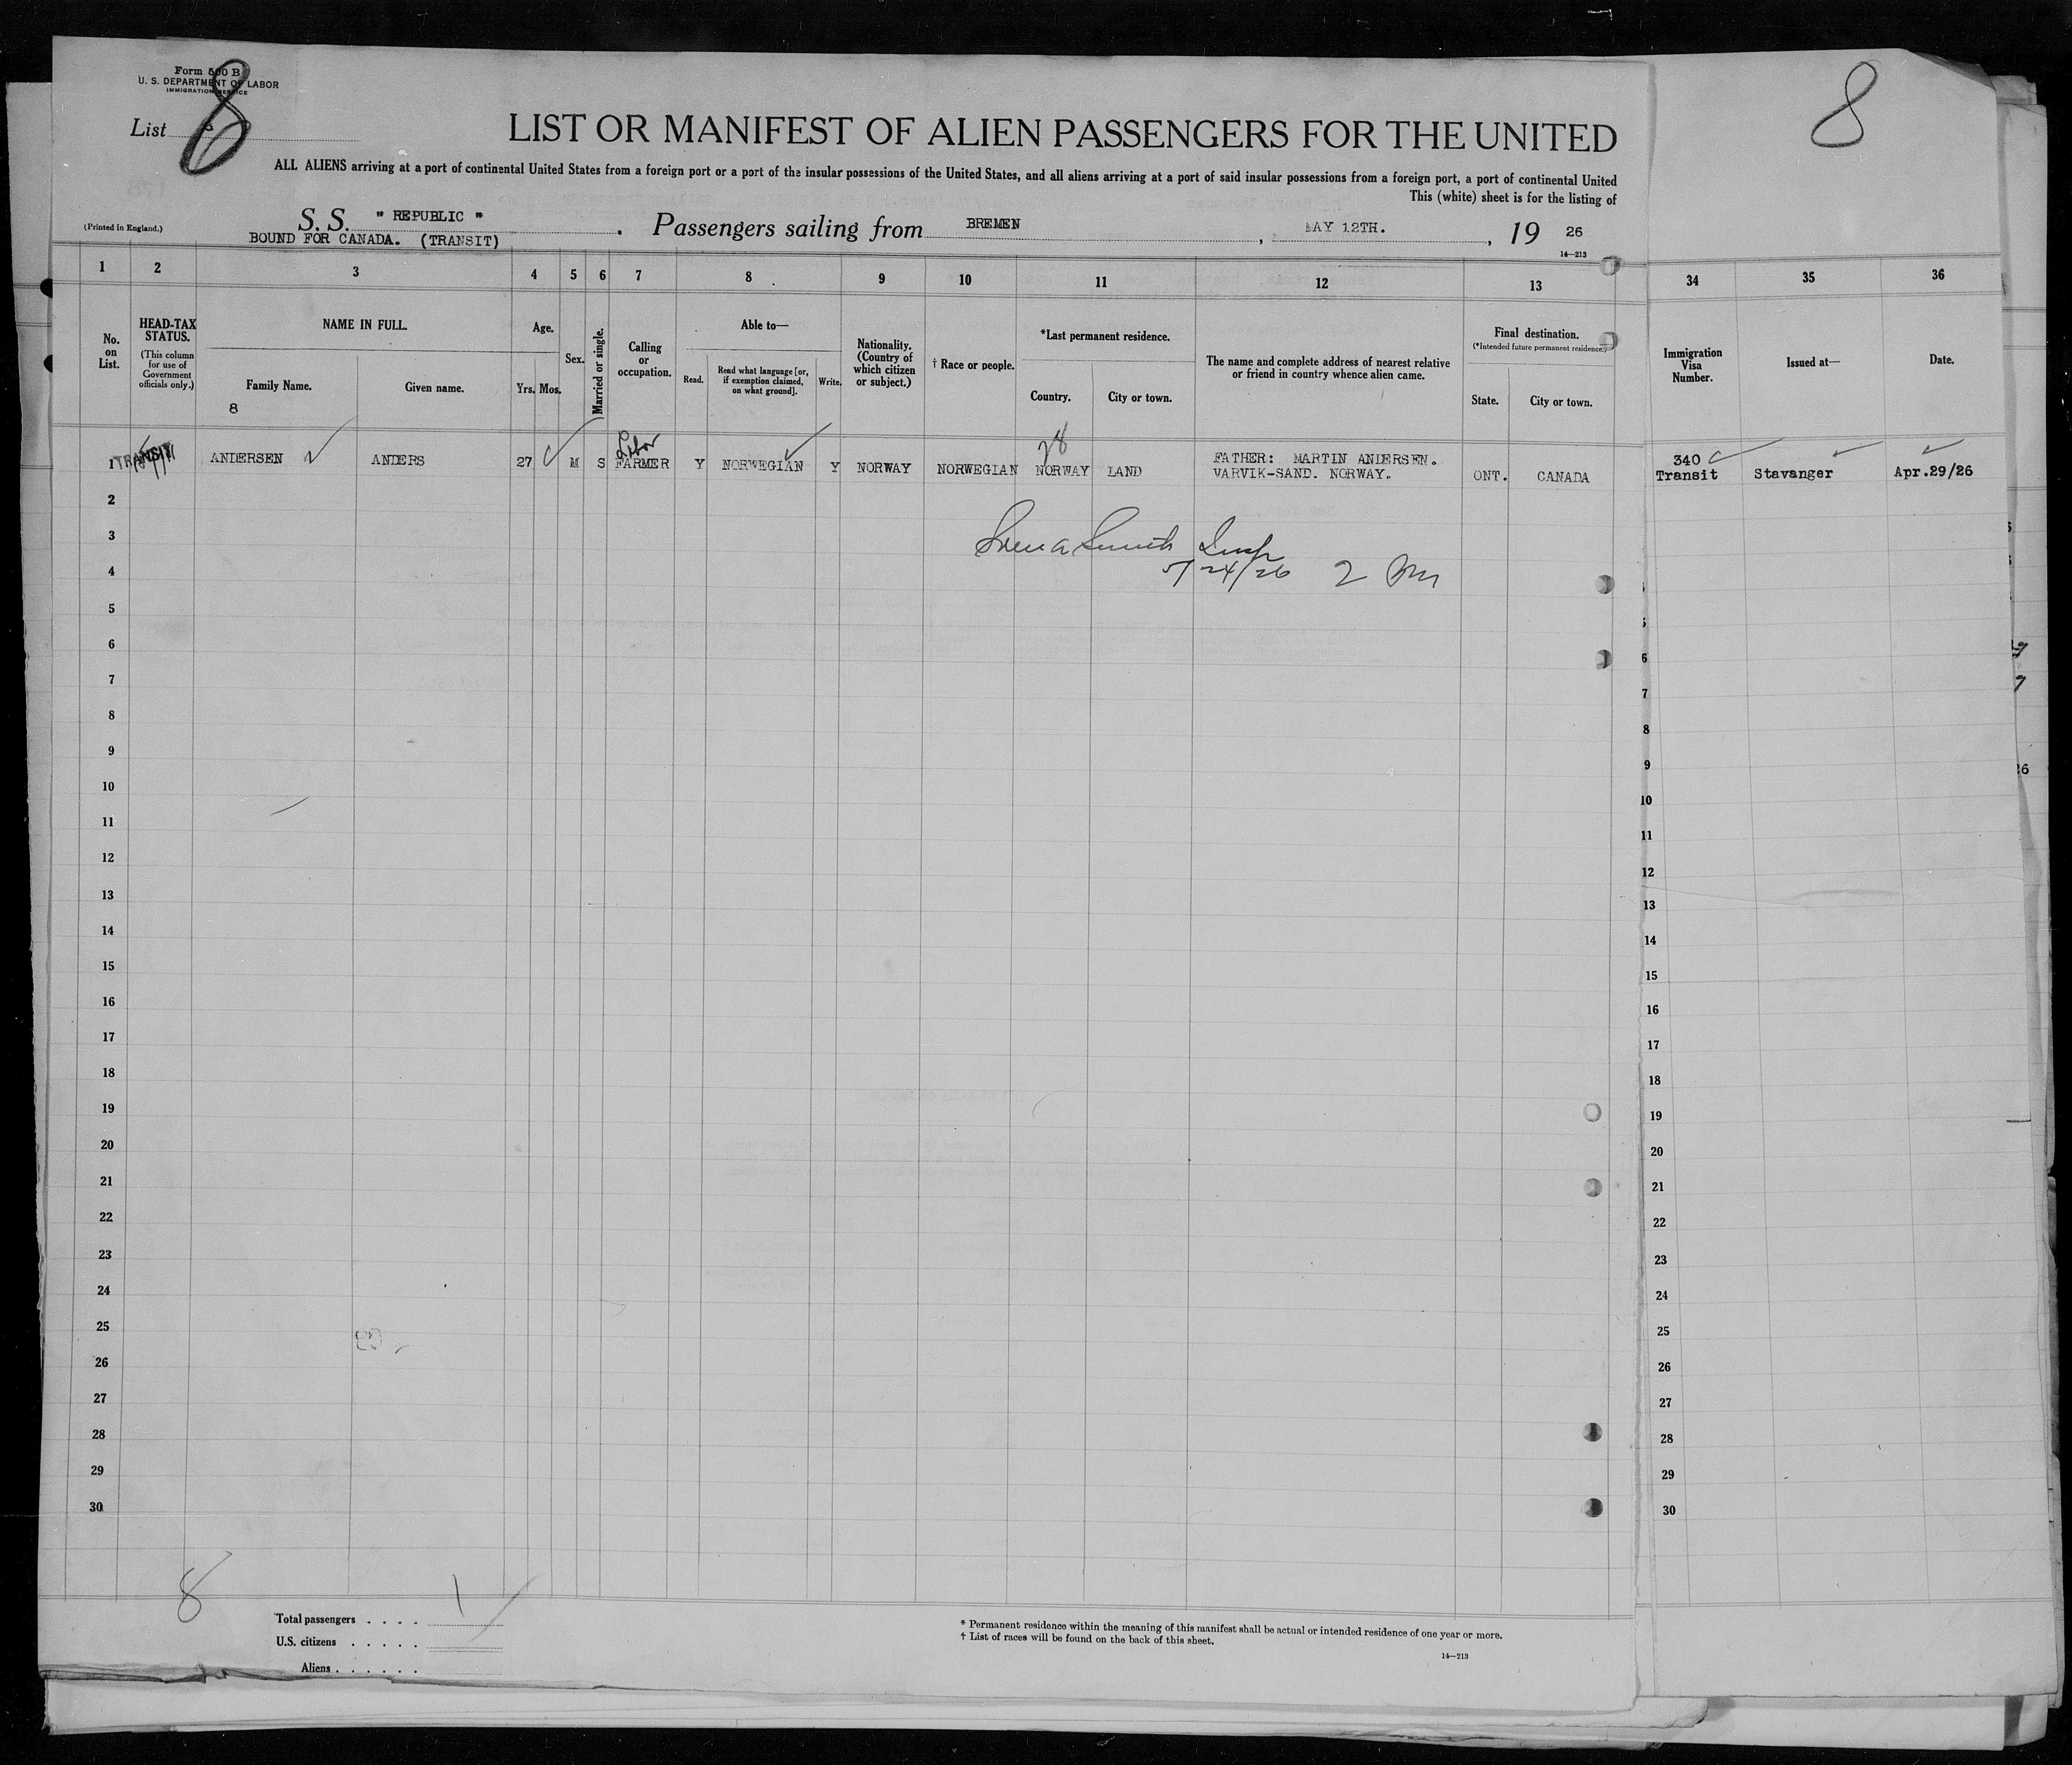 Form 500 B
U. S. DEPARTMENT OF LABOR
IMMIGRATION SERVICE
List 8
8
LIST OR MANIFEST OF ALIEN PASSENGERS FOR THE UNITED
ALL ALIENS arriving at a port of continental United States from a foreign port or a port of the insular possessions of the United States, and all aliens arriving at a port of said insular possessions from a foreign port, a port of continental United
This (white) sheet is for the listing of
(Printed in England.)
S. S. " REPUBLIC " . Passengers sailing from BREMEN , MAY 12TH. , 19 26
BOUND FOR CANADA. (TRANSIT)
14—213
1 2 3 4 5 6 7 8 9 10 11 12 13 34 35 36
No. on List.
HEAD-TAX STATUS.
(This column for use of Government officials only.)
NAME IN FULL.
Family Name.
Given name.
8
Age.
Yrs. Mos.
Sex.
Married or single.
Calling or occupation.
Able to—
Read.
Read what language [or, if exemption claimed, on what ground].
Write.
Nationality. (Country of which citizen or subject.)
† Race or people.
*Last permanent residence.
Country.
City or town.
The name and complete address of nearest relative or friend in country whence alien came.
Final destination.
(*Intended future permanent residence.)
State.
City or town.
Immigration Visa Number.
Issued at—
Date.
Labor
28
1 TRANSIT ANDERSEN ANDERS 27 M S FARMER Y NORWEGIAN Y NORWAY NORWEGIAN NORWAY LAND FATHER: MARTIN ANDERSEN. VARVIK-SAND. NORWAY. ONT. CANADA 340 Transit Stavanger Apr.29/26
2
3 Smith Insp
4 5/24/26 2 Pm
5
6 6
7 7
8 8
9 9
10 10
11 11
12 12
13 13
14 14
15 15
16 16
17 17
18 18
19 19
20 20
21 21
22 22
23 23
24 24
25 25
26 26
27 27
28 28
29 29
30 30
8
Total passengers . . . . 1
U.S. citizens . . . . .
Aliens . . . . . .
* Permanent residence within the meaning of this manifest shall be actual or intended residence of one year or more.
† List of races will be found on the back of this sheet.
14—213